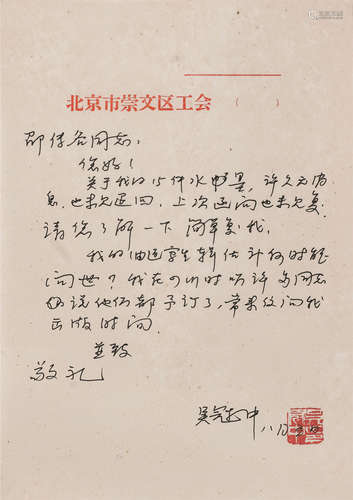 北京市崇文区工会 （ ）
邵传谷同志：
您好！
关于我的15件水 墨，许久无消
息，也未见返回，上次函询也未见复，
请您了解一下 简单复我。
我的油画写生辑估计何时能
问世？我在四川时听许多同志
们说他们都予订了，常来信问我
出版时间。
并致
敬礼
吴冠中 八月